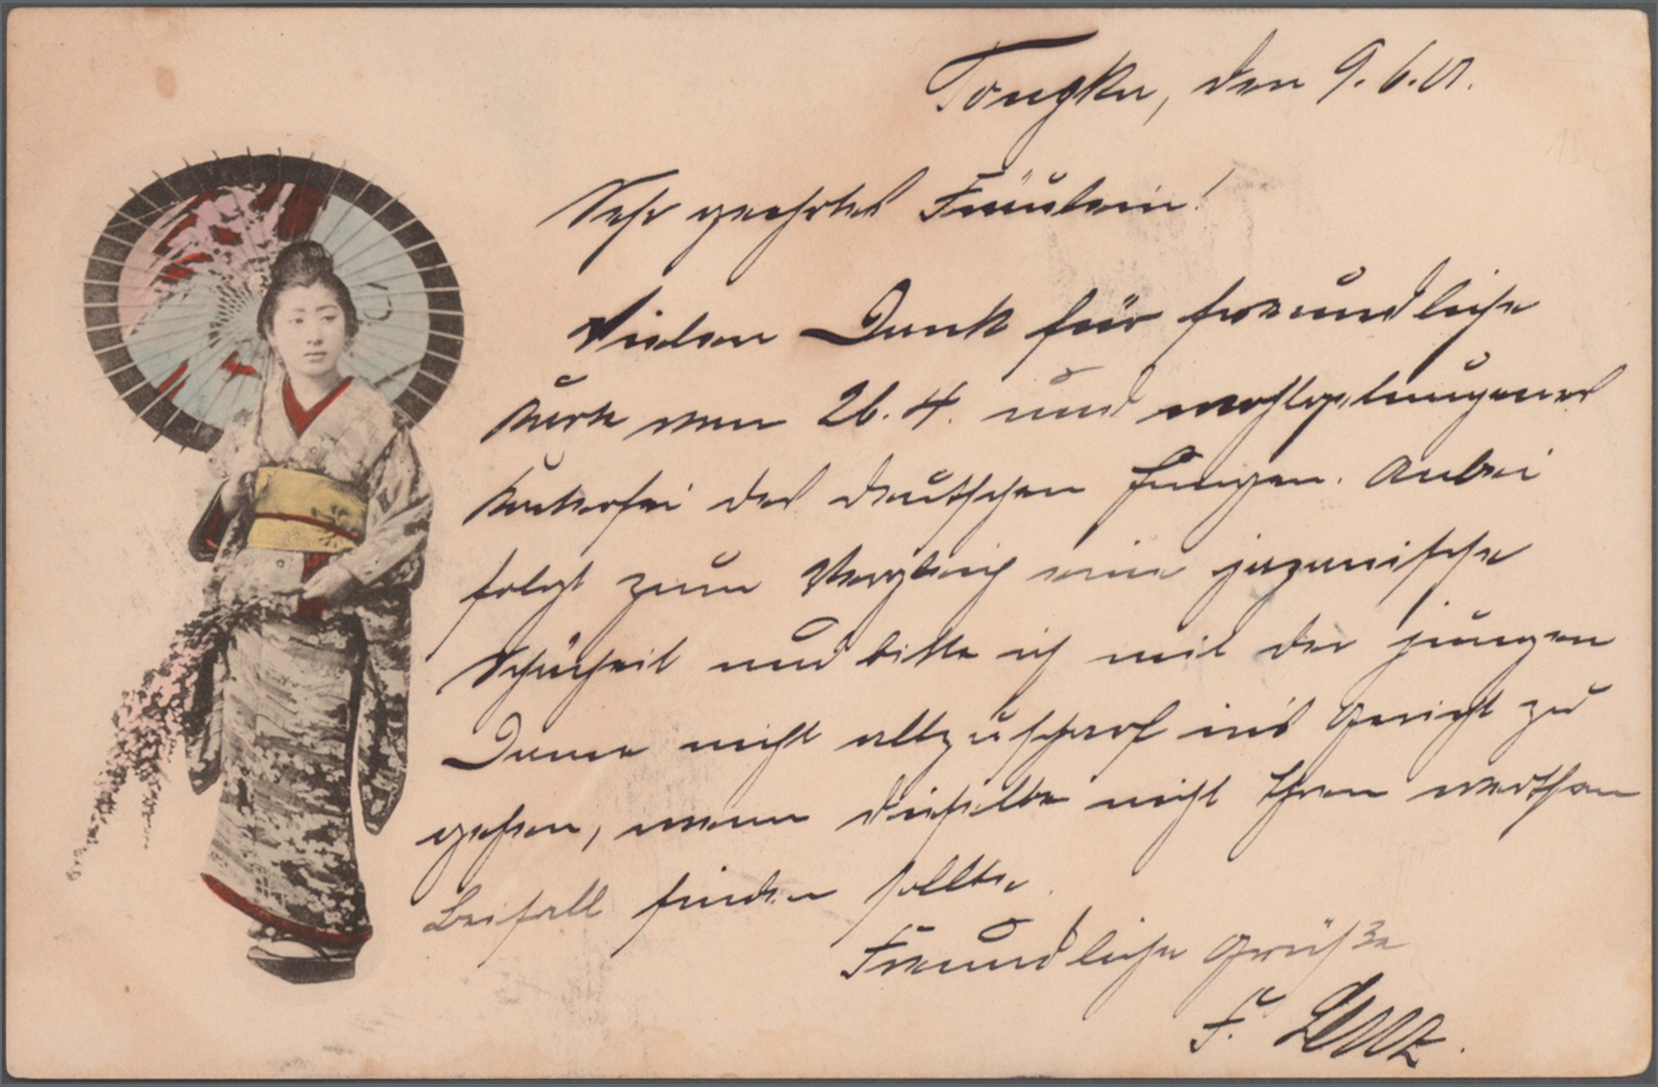 Tongku, den 9.6.01.
Sehr geehrtes Fräulein!
Vielen Dank für freundliche
Karte vom 26.4. und wohlgelungenes
Konterfei des deutschen Jungen. Anbei
folgt zum Vergleich eine japanische
Schönheit und bitte ich mit der jungen
Dame nicht allzuscharf in's Gericht zu
gehen, wenn dieselbe nicht Ihren werthen
Beifall finden sollte.
Freundliche Grüße
F.